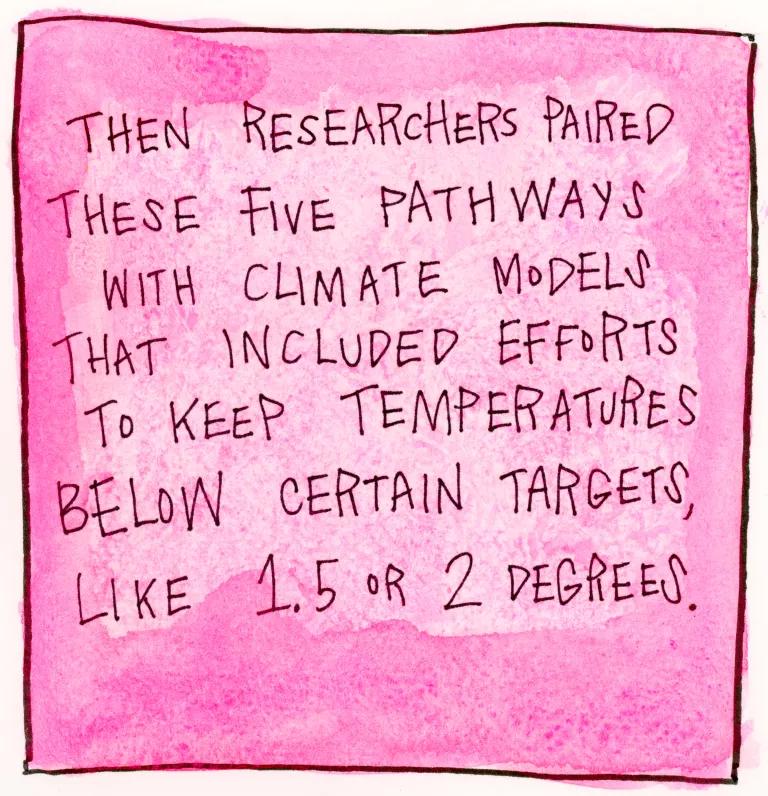 THEN RESEARCHERS PAIRED
THESE FIVE PATHWAYS
WITH CLIMATE MODELS
THAT INCLUDED EFFORTS
TO KEEP TEMPERATURES
BELOW CERTAIN TARGETS,
LIKE 1.5 OR 2 DEGREES.